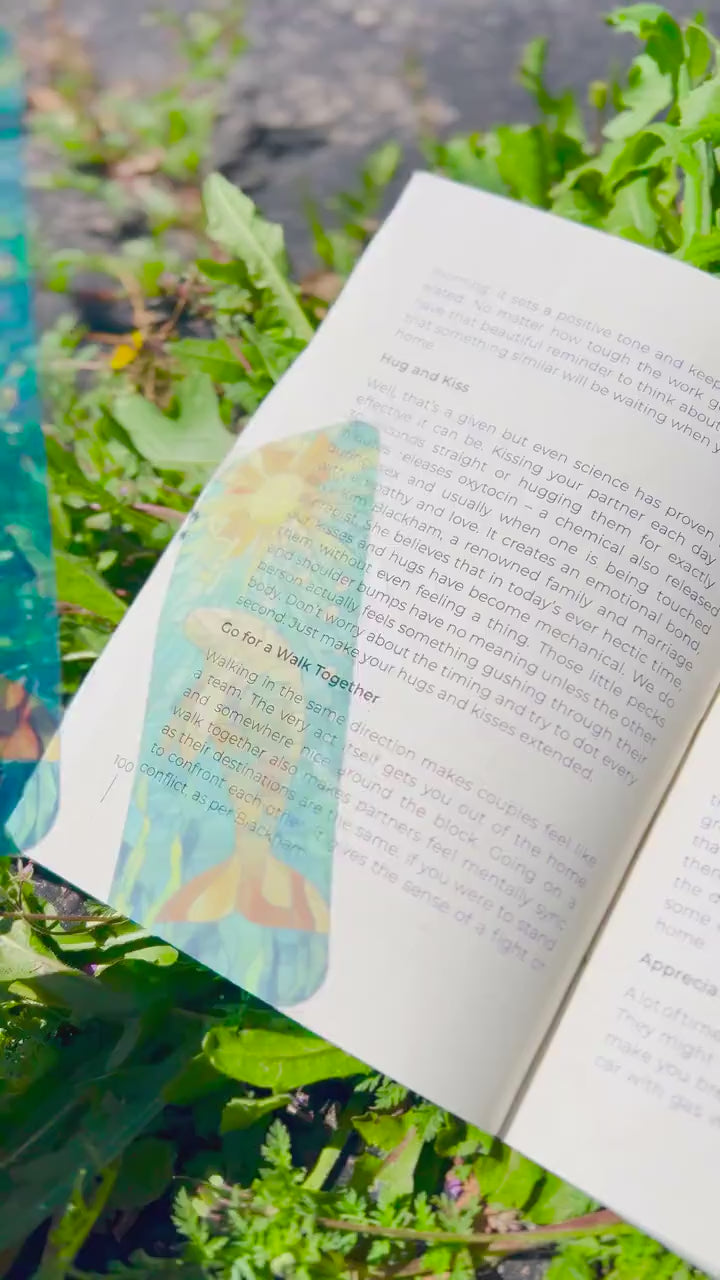 morning, it sets a positive tone and keep
erated. No matter how tough the work g
have that beautiful reminder to think about
that something similar will be waiting when y
home.
Hug and Kiss
Well, that's a given but even science has proven
effective it can be. Kissing your partner each day
seconds straight or hugging them for exactly
releases oxytocin – a chemical also released
during sex and usually when one is being touched
with empathy and love. It creates an emotional bond,
Blackham, a renowned family and marriage
She believes that in today's ever hectic time,
our kisses and hugs have become mechanical. We do
them, without even feeling a thing. Those little pecks
and shoulder bumps have no meaning unless the other
person actually feels something gushing through their
body. Don't worry about the timing and try to dot every
second. Just make your hugs and kisses extended.
Go for a Walk Together
Walking in the same direction makes couples feel like
a team. The very act itself gets you out of the home
and somewhere nice around the block. Going on a
walk together also makes partners feel mentally sync
as their destinations are the same. If you were to stand
to confront each other it gives the sense of a fight or
conflict, as per Blackham.
100
t
gr
tha
then
the d
some
home
Apprecia
A lot of time
They might
make you br
car with gas